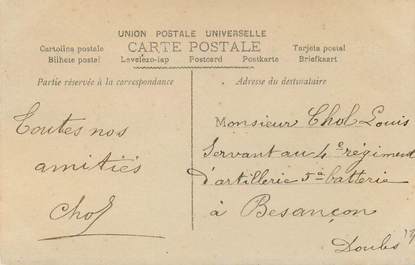 UNION POSTALE UNIVERSELLE
CARTE POSTALE
Cartolina postale
Bilhete postal
Levelező-lap Postcard Postkarte
Tarjeta postal
Briefkaart
Partie réservée à la correspondance
Adresse du destinataire
Toutes nos
amitiés
Chol
Monsieur Chol Louis
Servant au 4e régiment
d'artillerie 5e batterie
à Besançon
Doubs